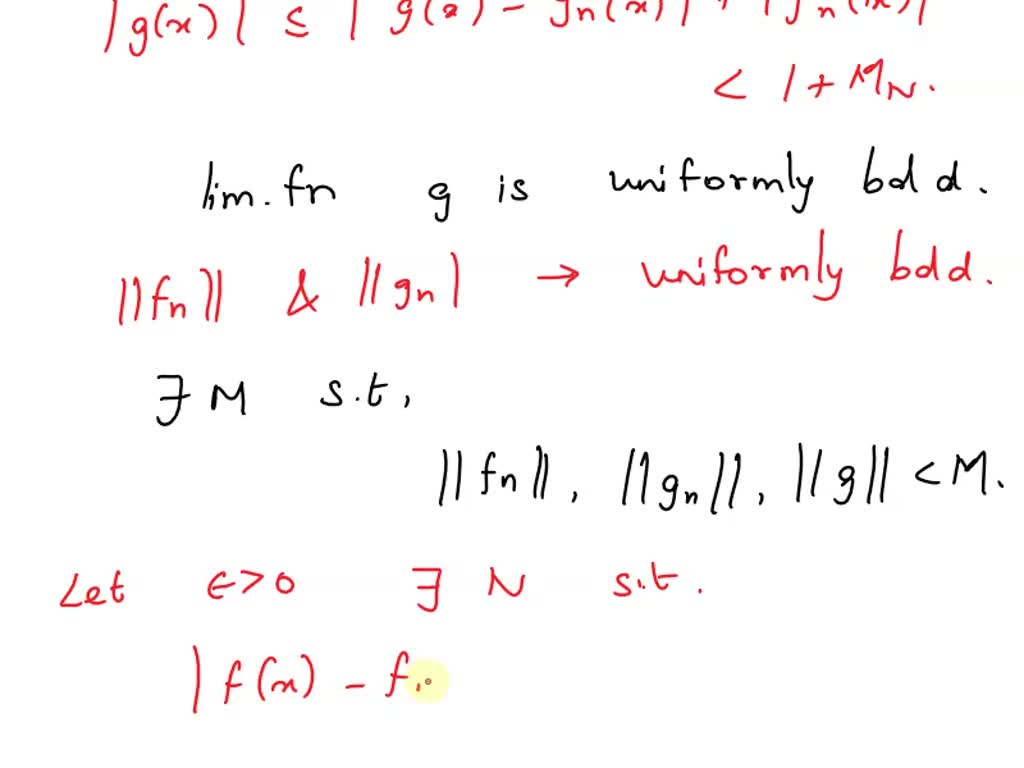 |g(x)| ≤ | g(x) - gn(x) | + |gn(x)|
< 1 + MN.
lim. fn g is uniformly bdd.
||fn|| & ||gn| → uniformly bdd.
∃ M s.t,
||fn||, ||gn||, ||g|| < M.
Let ϵ>0 ∃ N s.t.
| f(x) - f